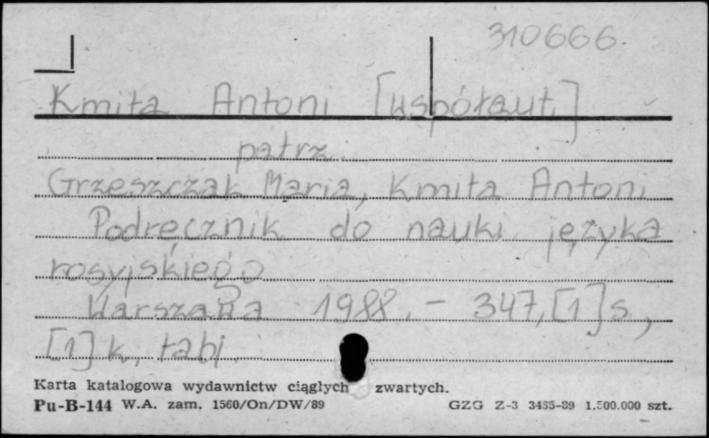 310666.
Kmita Antoni [współaut.]
patrz
Grzeszczak Maria, Kmita Antoni
Podręcznik do nauki języka
rosyjskiego
Warszawa 1988. - 347, [1] s,
[1] k, tabl.
Karta katalogowa wydawnictw ciągłych zwartych.
Pu-B-144 W.A. zam. 1560/On/DW/89 GZG Z-3 3435-89 1.500.000 szt.